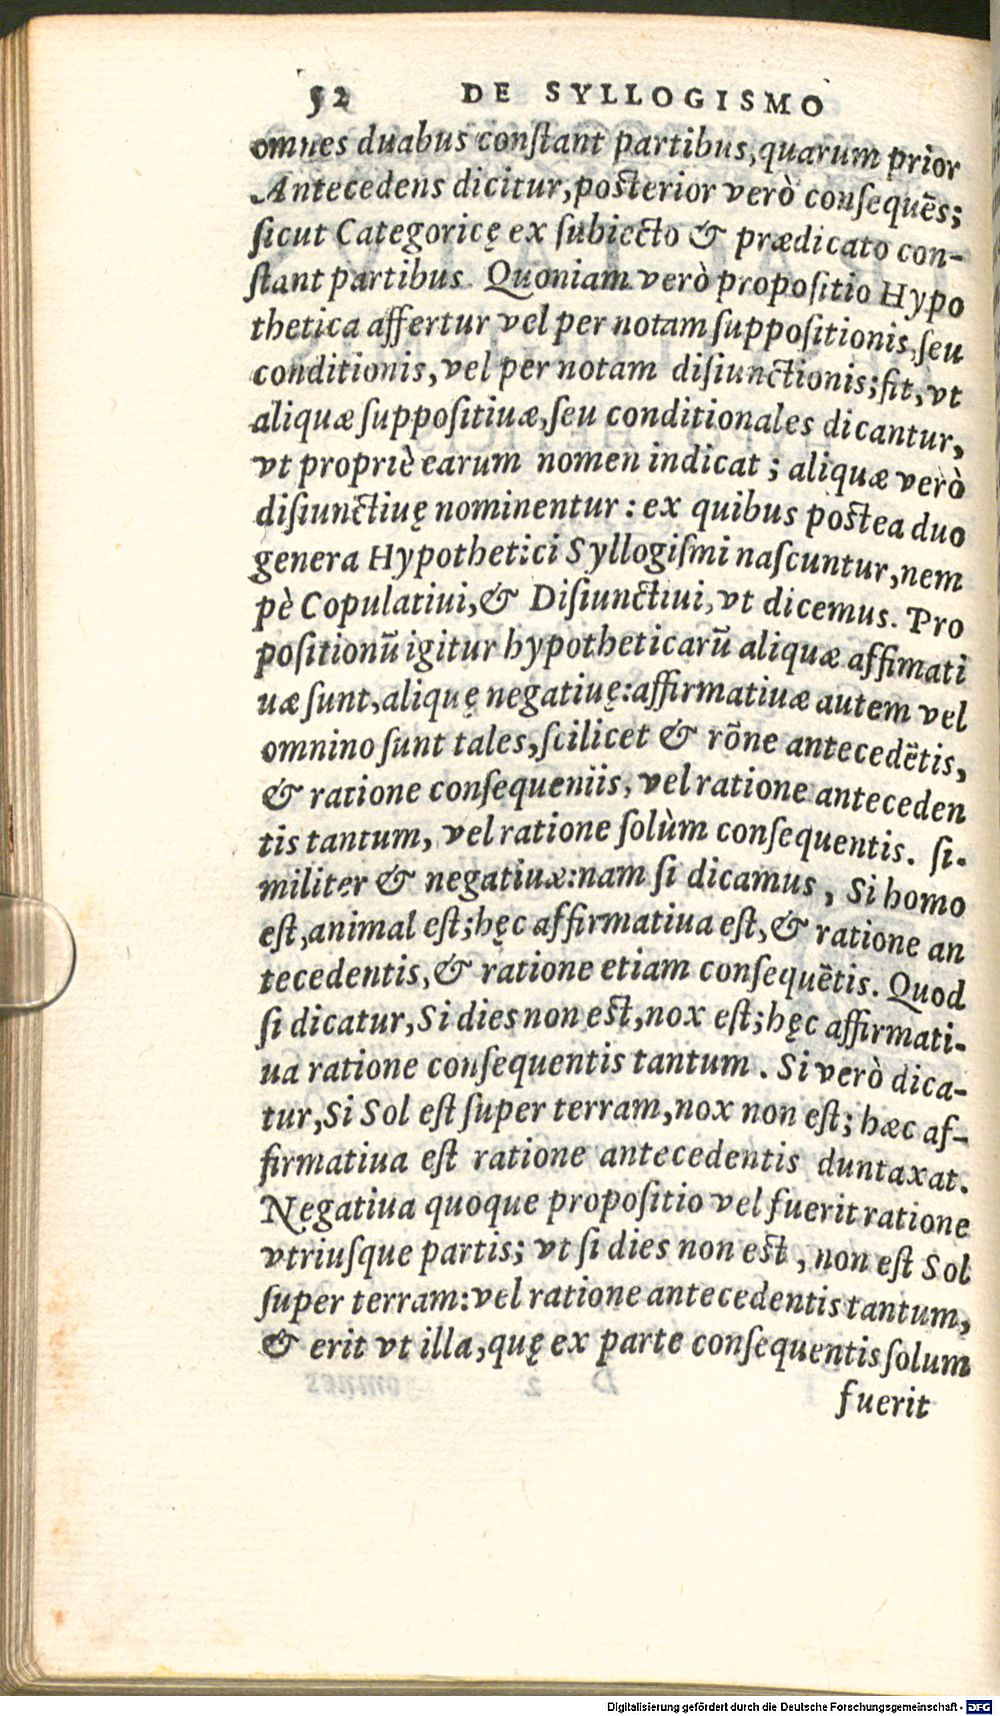 52 DE SYLLOGISMO
omnes duabus conſtant partibus, quarum prior
Antecedens dicitur, posterior verò conſequēs;
ſicut Categoricę ex ſubiecto & prædicato con-
ſtant partibus. Quoniam verò propoſitio Hypo
thetica affertur vel per notam ſuppoſitionis, ſeu
conditionis, vel per notam diſiunctionis; fit, vt
aliquæ ſuppoſitiuæ, ſeu conditionales dicantur,
vt propriè earum nomen indicat; aliquæ verò
diſiunctiuę nominentur: ex quibus postea duo
genera Hypothetici Syllogiſmi naſcuntur, nem
pè Copulatiui, & Diſiunctiui, vt dicemus. Pro
poſitionū igitur hypotheticarū aliquæ affimati
uæ ſunt, aliquę negatiuę: affirmatiuæ autem vel
omnino ſunt tales, ſcilicet & rōne antecedētis,
& ratione conſequeniis, vel ratione anteceden
tis tantum, vel ratione ſolùm conſequentis. ſi-
militer & negatiuæ: nam ſi dicamus, Si homo
eſt, animal eſt; hęc affirmatiua eſt, & ratione an
tecedentis, & ratione etiam conſequētis. Quod
ſi dicatur, Si dies non est, nox eſt; hęc affirmati-
ua ratione conſequentis tantum. Si verò dica-
tur, Si Sol eſt ſuper terram, nox non eſt; hæc af-
firmatiua eſt ratione antecedentis duntaxat.
Negatiua quoque propoſitio vel fuerit ratione
vtriuſque partis; vt ſi dies non est, non eſt Sol
ſuper terram: vel ratione antecedentis tantum,
& erit vt illa, quę ex parte conſequentis ſolum
fuerit
Digitalisierung gefördert durch die Deutsche Forschungsgemeinschaft - DFG